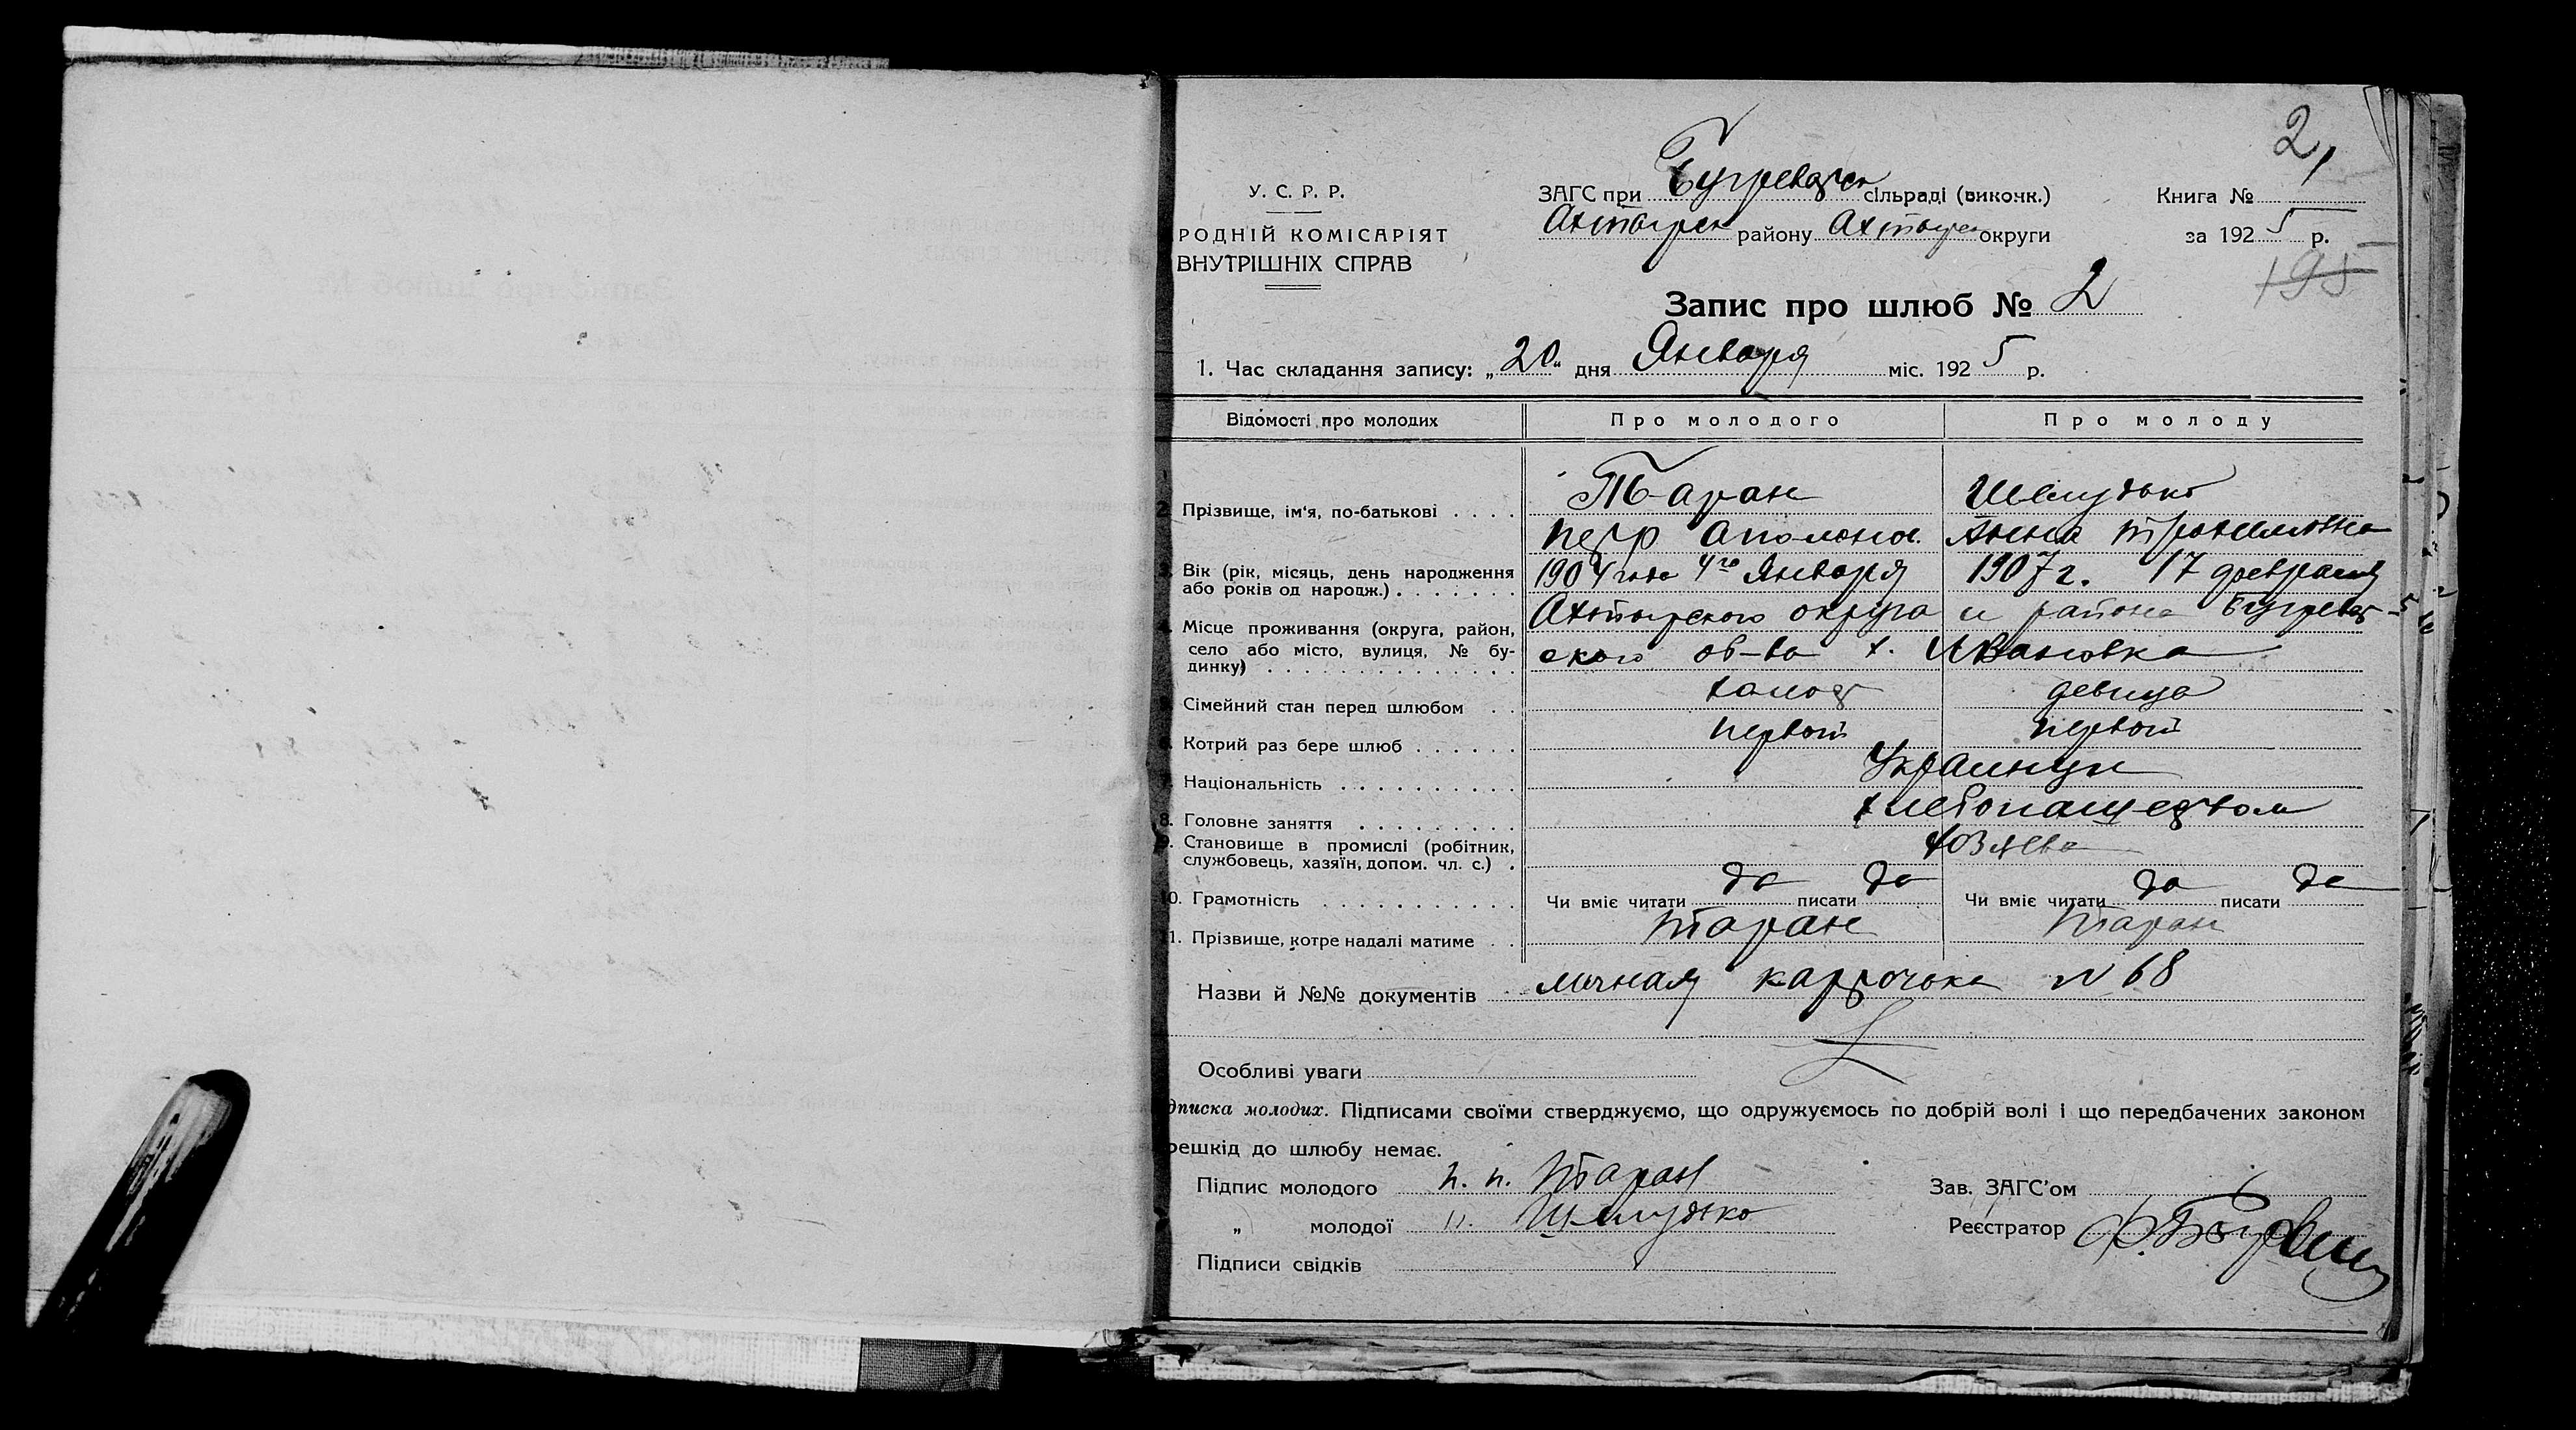 2,
У. С. Р. Р.
РОДНІЙ КОМІСАРІЯТ
ВНУТРІШНІХ СПРАВ
ЗАГС при сільраді (викочк.)
Ахтырск району Ахтырск округи
Книга №
за 1925 р.
195
Запис про шлюб № 2
1. Час складання запису: „20" дня Января міс. 1925 р.
Відомості про молодих Про молодого Про молоду
2. Прізвище, ім'я, по-батькові Таран Шелудько
Петр Аполона. Анна
3. Вік (рік, місяць, день народження 1904 года 4го Января 1907 г. 17 февраля
або років од народж.)
4. Місце проживання (округа, район, Ахтырского округа и района Бугреват-
село або місто, вулиця, № бу- ского об-ва х. Ивановка
динку)
5. Сімейний стан перед шлюбом холост девица
6. Котрий раз бере шлюб первый первый
7. Національність Украинци
8. Головне заняття хлебопашеством
9. Становище в промислі (робітник,
службовець, хазяїн, допом. чл. с.) хозяева
10. Грамотність Чи вміє читати да писати да Чи вміє читати да писати да
11. Прізвище, котре надалі матиме Таран Таран
Назви й №№ документів личная карточка № 68
Особливі уваги
дписка молодих. Підписами своїми стверджуємо, що одружуємось по добрій волі і що передбачених законом
решкід до шлюбу немає.
Підпис молодого п. п. Таран
„ молодої Шелудько
Підписи свідків
Зав. ЗАГС'ом
Реєстратор